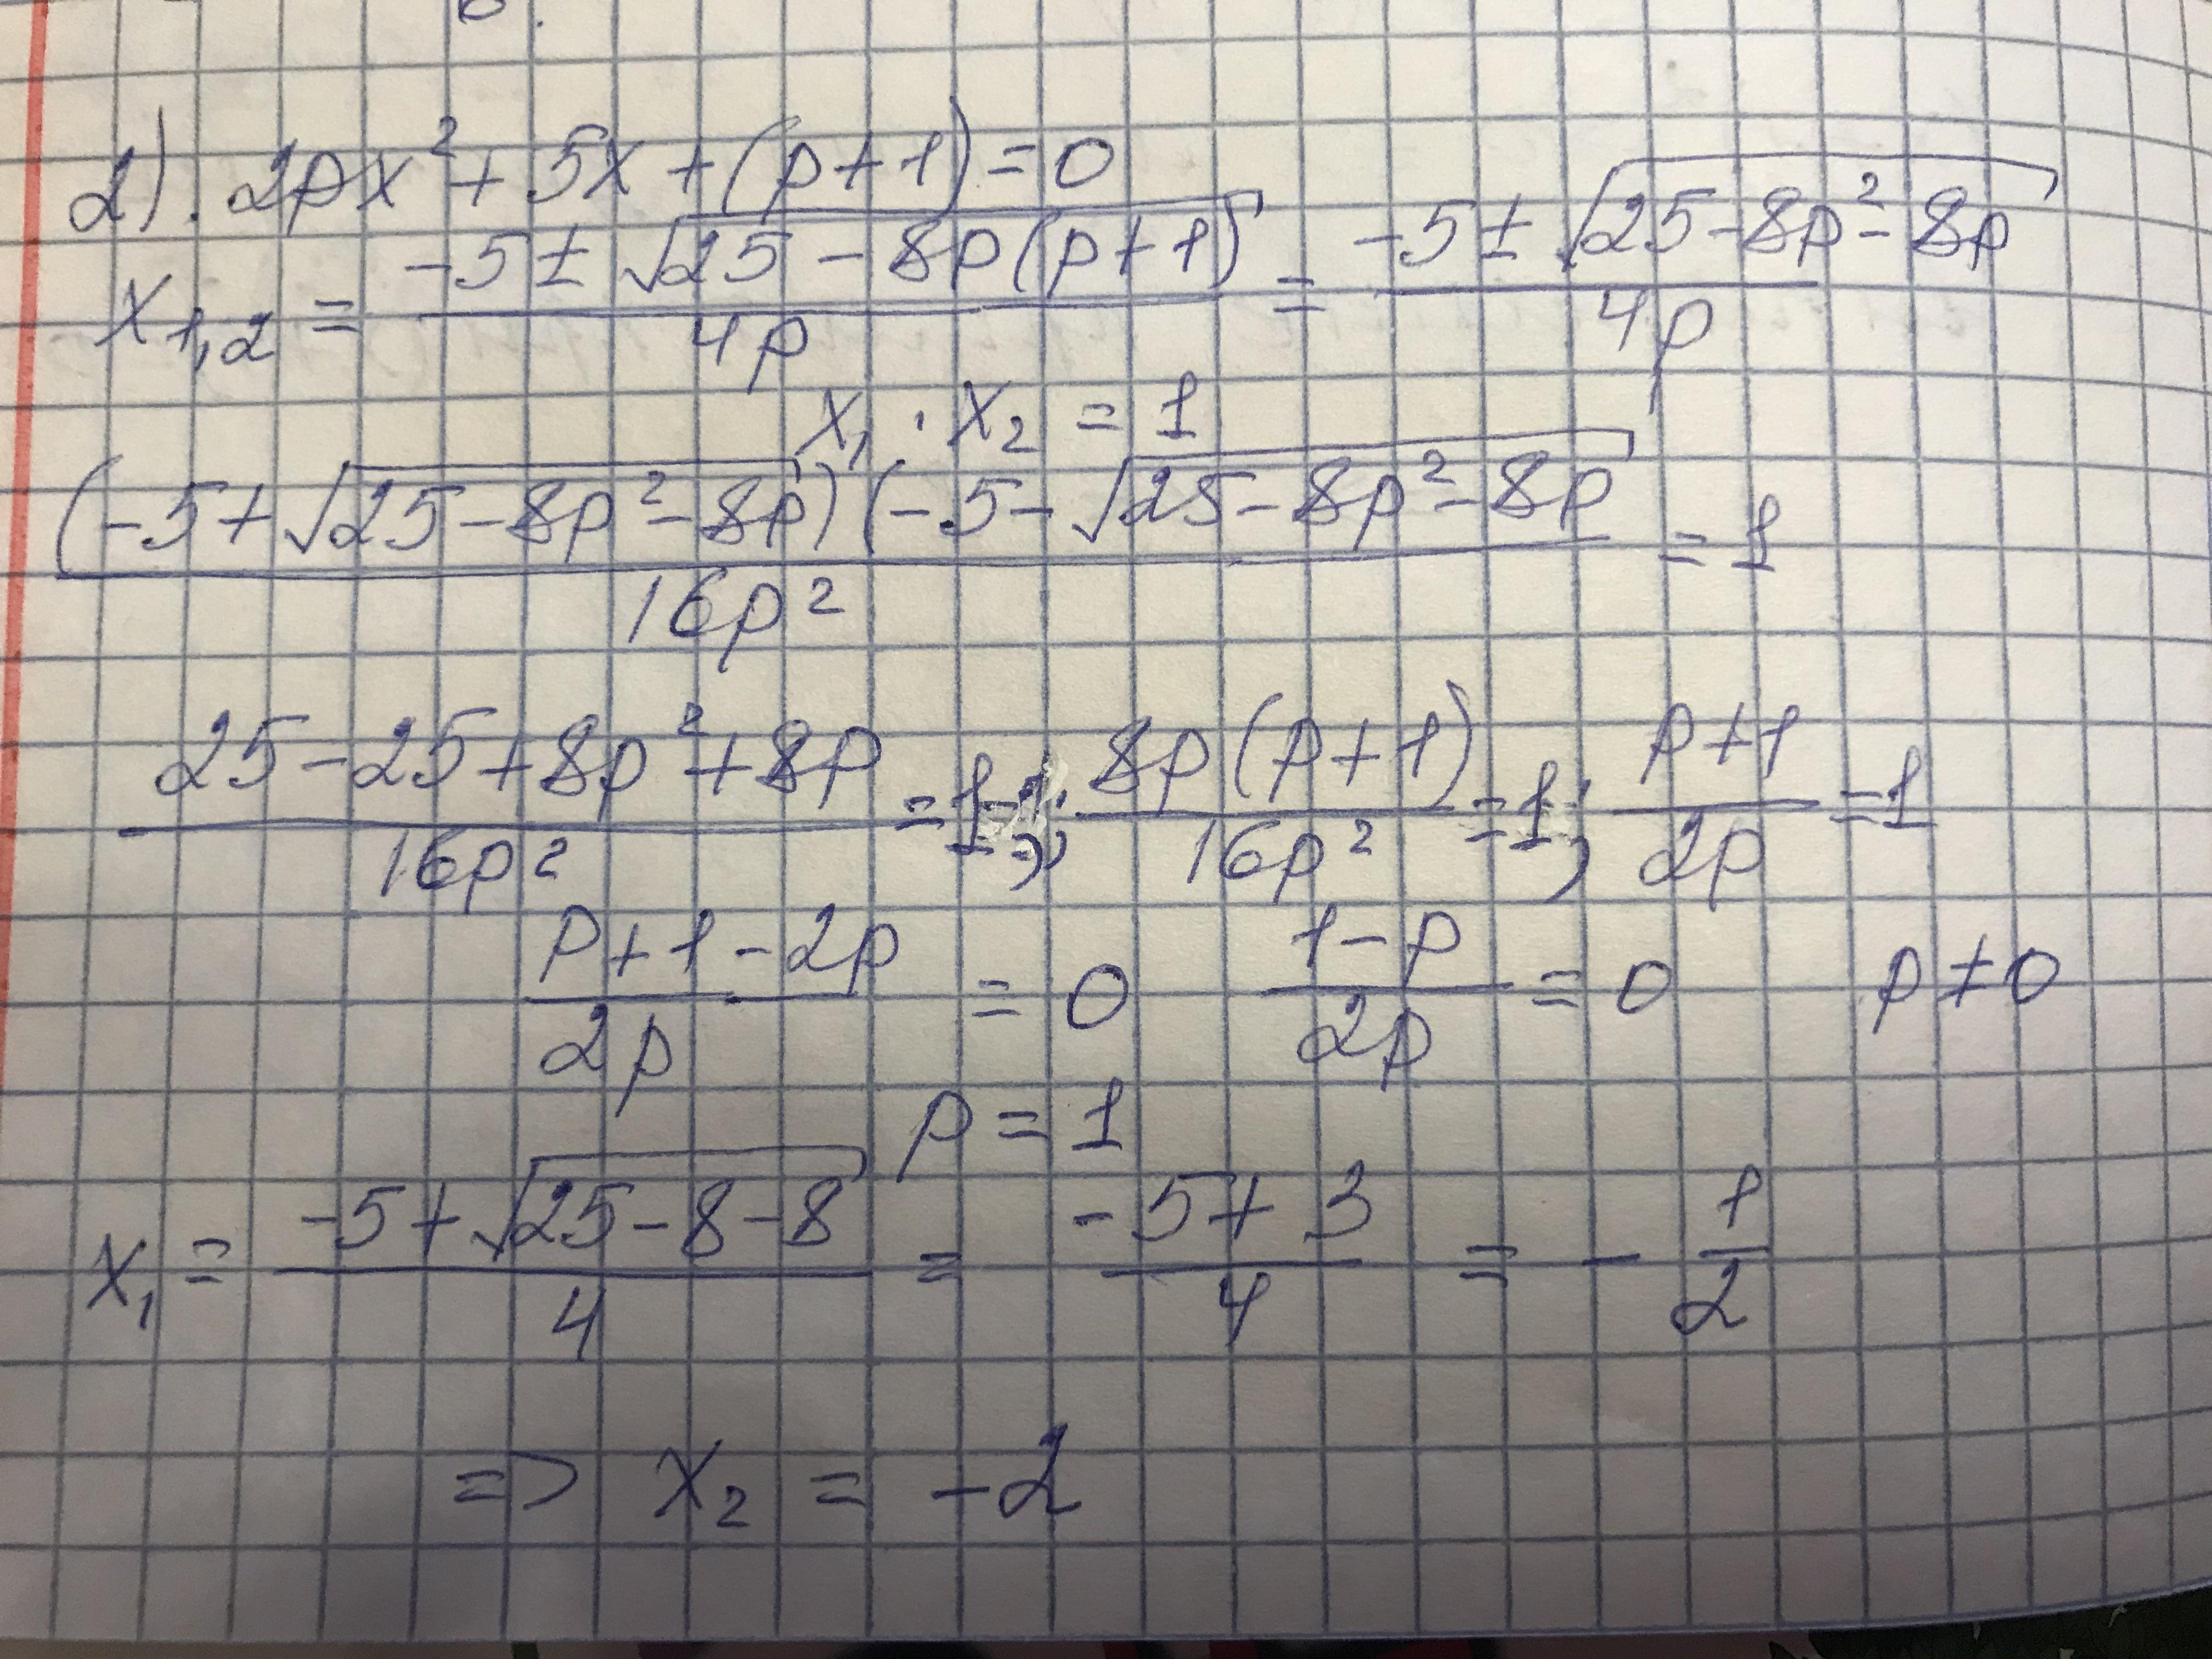 2). 2px² + 5x + (p+1) = 0
x₁,₂ = (-5 ± √(25 - 8p(p+1)))/(4p) = (-5 ± √(25 - 8p² - 8p))/(4p)
x₁ · x₂ = 1
((-5 + √(25 - 8p² - 8p))(-5 - √(25 - 8p² - 8p))/(16p²) = 1
(25 - 25 + 8p² + 8p)/(16p²) = 1; (8p(p+1))/(16p²) = 1; (p+1)/(2p) = 1
(p+1-2p)/(2p) = 0 (1-p)/(2p) = 0 p ≠ 0
p = 1
x₁ = (-5 + √(25-8-8))/4 = (-5+3)/4 = -1/2
=> x₂ = -2